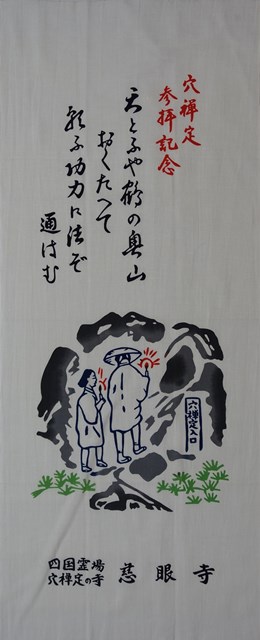 穴禅定
参拝記念
天とふや鶴の奥山
おくたへて
願ふ功力に法ぞ
通はむ
穴禅定入口
四国霊場
穴禅定の寺
慈眼寺